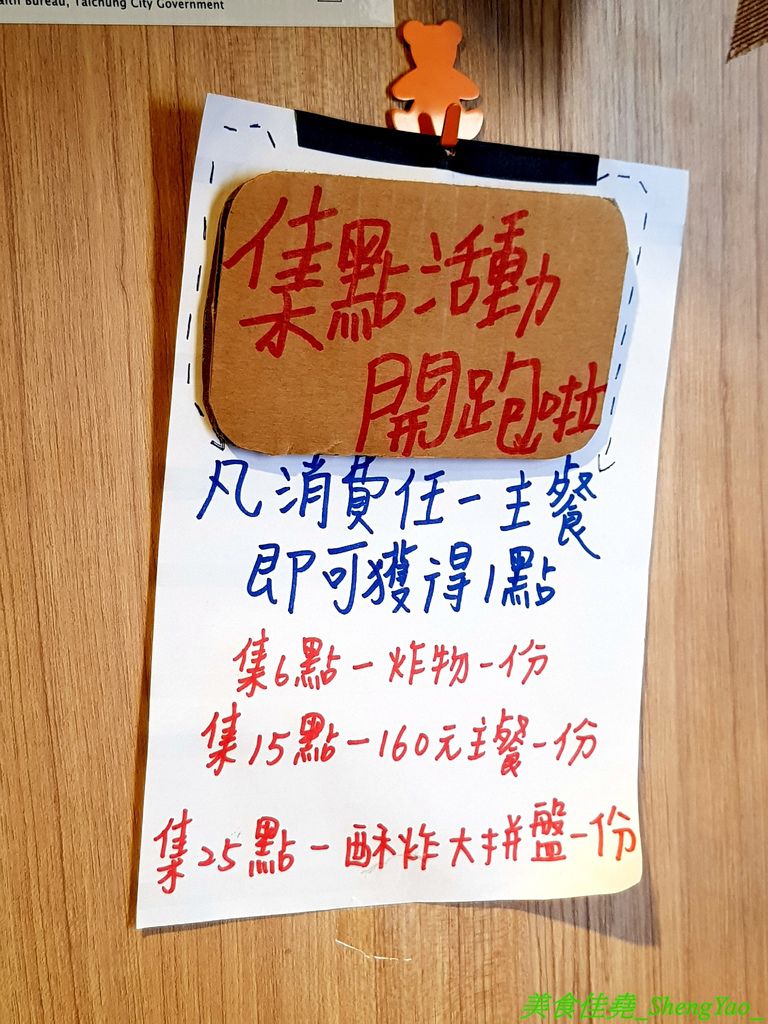 Health Bureau, Taichung City Government
集點活動
開跑啦
凡消費任一主餐
即可獲得1點
集6點－炸物一份
集15點－160元主餐一份
集25點－酥炸大拼盤一份
美食佳堯_ShengYao_